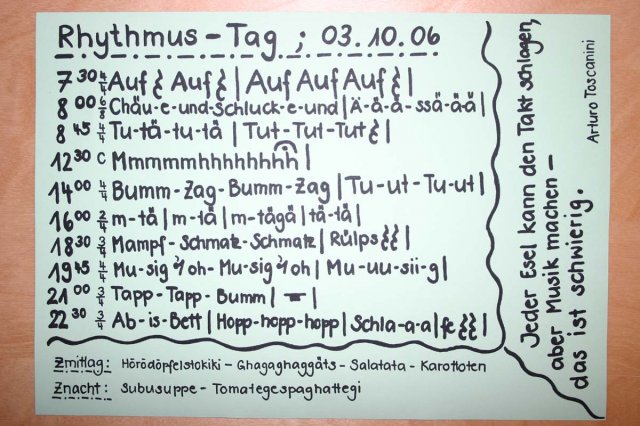 Rhythmus - Tag ; 03.10.06
7 30 4/4 Auf { Auf { | Auf Auf Auf { |
8 00 6/8 Chäu-e-und-schluck-e-und | Ä-ä-ä-ssä-ä-ä |
8 45 4/4 Tu-tä-tu-tä | Tut-Tut-Tut { |
12 30 C Mmmmmhhhhhhhhh |
14 00 4/4 Bumm-Zag-Bumm-Zag | Tu-ut-Tu-ut |
16 00 2/4 m-tä | m-tä | m-tägä | tä-tä |
18 30 3/4 Mampf-Schmatz-Schmatz | Rülps { { |
19 45 4/4 Mu-sig oh-Mu-sig oh | Mu-uu-sii-g |
21 00 3/4 Tapp-Tapp-Bumm | - |
22 30 3/4 Ab-is-Bett | Hopp-hopp-hopp | Schla-a-a | fe { { |
Zmittag: Hörödöpfelstokiki - Ghagaghaggäts - Salatata - Karottoten
Znacht: Subusuppe - Tomategespaghattegi
Jeder Esel kann den Takt schlagen,
aber Musik machen -
das ist schwierig.
Arturo Toscanini